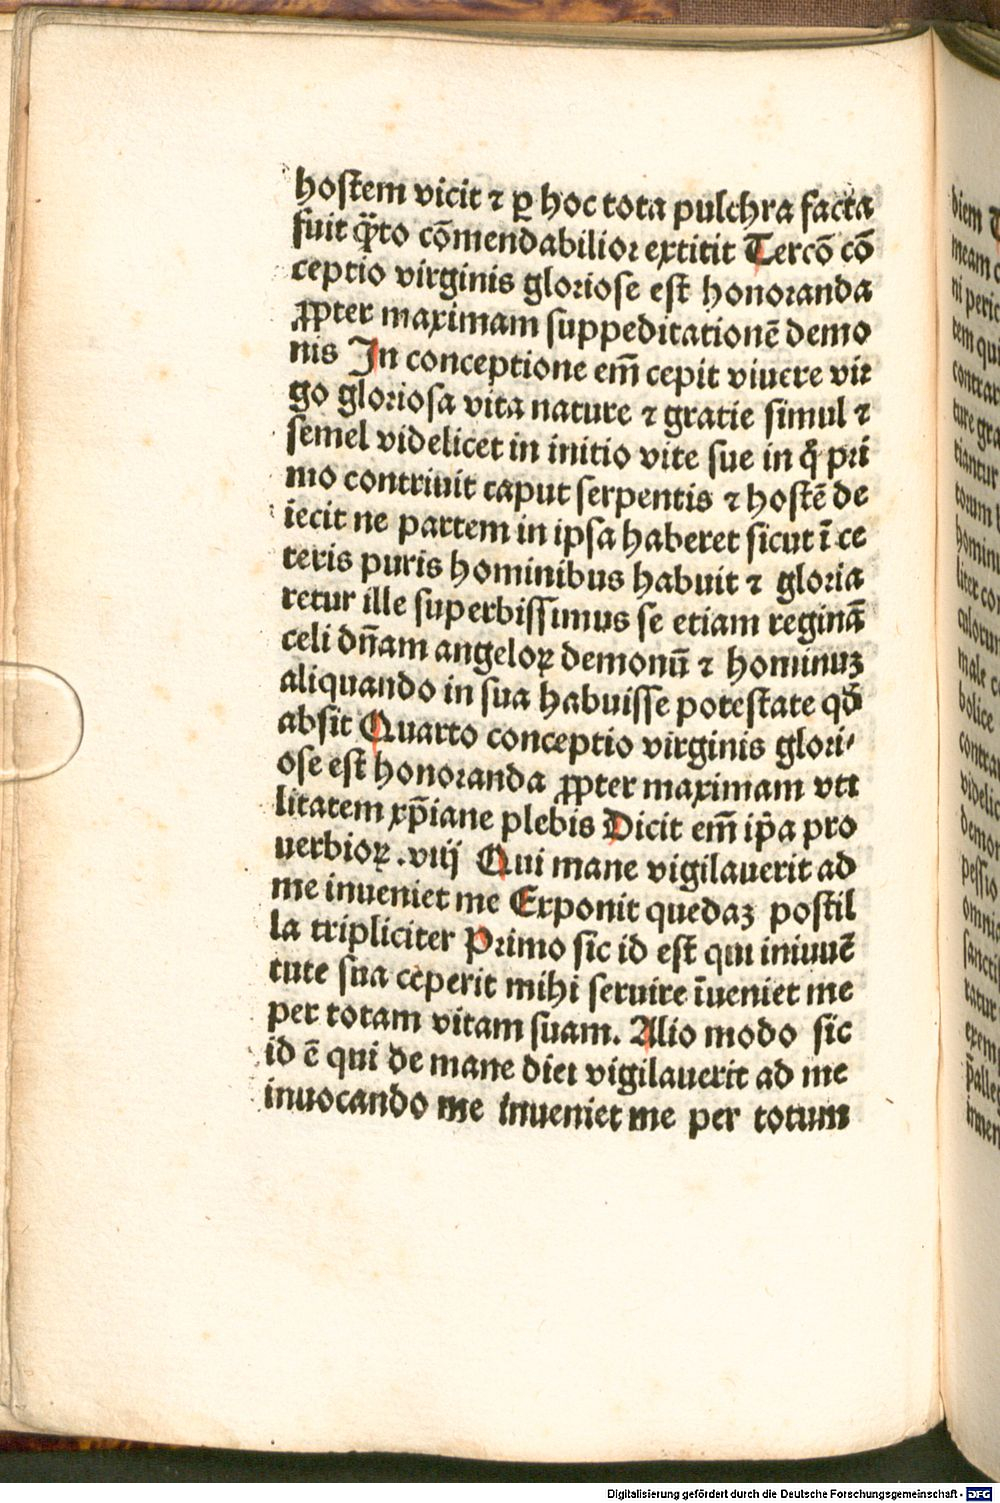 hostem vicit ⁊ ꝑ hoc tota pulchra facta
fuit q̈̄to cōmendabilior extitit Tercō cō
ceptio virginis gloriose est honoranda
ꝓpter maximam suppeditationē demo
nis In conceptione em̄ cepit viuere vir
go gloriosa vita nature ⁊ gratie simul ⁊
semel videlicet in initio vite sue in q̊ pri
mo contriuit caput serpentis ⁊ hostē de
iecit ne partem in ipsa haberet sicut ī ce
teris puris hominibus habuit ⁊ gloria
retur ille superbissimus se etiam reginā
celi dn̄am angeloꝝ demonū ⁊ hominuꝫ
aliquando in sua habuisse potestate qđ
absit Quarto conceptio virginis glori⸗
ose est honoranda ꝓpter maximam vti
litatem xp̄iane plebis Dicit em̄ ip̄a pro
uerbioꝝ .viij Qui mane vigilauerit ad
me inueniet me Exponit quedaꝫ postil
la tripliciter Primo sic id est qui iniuuē
tute sua ceperit mihi seruire īueniet me
per totam vitam suam. Alio modo sic
id ē qui de mane diei vigilauerit ad me
inuocando me inueniet me per totum
diem
meam
ni peric
tem qui
contrar
ture gra
tiantur
torum
hominu
liter co
culorum
male c
bolice
contra
videlic
demon
pessio
omnia
sancti
ratur
exemp
p̄alleg
inuen
Digitalisierung gefördert durch die Deutsche Forschungsgemeinschaft - DFG